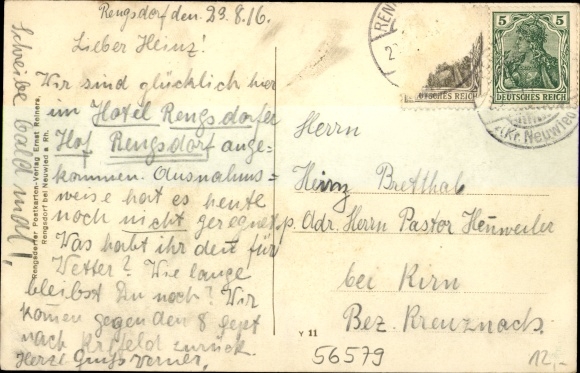 Rengsdorf den 29.8.16.
Lieber Heinz!
Wir sind glücklich hier
im Hotel Rengsdorfer
Hof Rengsdorf ange-
kommen. Ausnahms=
weise hat es heute
noch nicht geregnet.
Was habt ihr denn für
Wetter? Wie lange
bleibst Du noch? Wir
komen gegen den 8 Sept
nach Krefeld zurück.
Herzl. Gruß Werner.
Schreibe bald mal!
Rengsdorfer Postkarten-Verlag Ernst Reiners,
Rengsdorf bei Neuwied a. Rh.
5 5
DEUTSCHES REICH
DEUTSCHES REICH
REN
(Kr. Neuwied)
Herrn
Heinz Bretthal
p. Adr. Herrn Pastor Hennweiler
bei Kirn
Bez. Kreuznach.
Y 11
56579
12,-